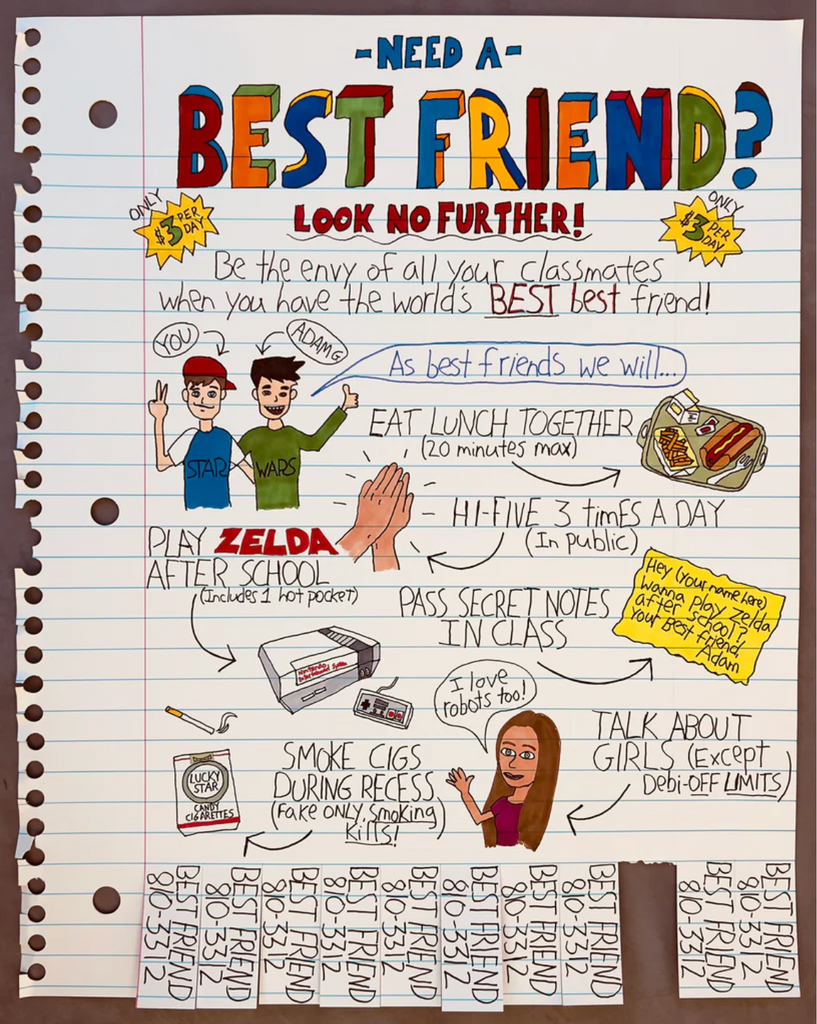 -NEED A-
BEST FRIEND?
LOOK NO FURTHER!
ONLY
$3 PER
DAY
ONLY
$3 PER
DAY
Be the envy of all your classmates
when you have the world's BEST best friend!
YOU
ADAM G
As best friends we will...
STAR WARS
EAT LUNCH TOGETHER
(20 minutes max)
HI-FIVE 3 timES A DAY
(In public)
PLAY ZELDA
AFTER SCHOOL
(Includes 1 hot pocket)
Nintendo
Entertainment System
PASS SECRET NOTES
IN CLASS
Hey (Your name here)
Wanna Play Zelda
after school?
Your Best friend,
Adam
I love
robots too!
TALK ABOUT
GIRLS (Except
Debi-OFF LIMITS)
SMOKE CIGS
DURING RECESS
(Fake ONLY, Smoking
Kills!)
LUCKY
STAR
CANDY
CIGARETTES
BEST FRIEND
810-3312
BEST FRIEND
810-3312
BEST FRIEND
810-3312
BEST FRIEND
810-3312
BEST FRIEND
810-3312
BEST FRIEND
810-3312
BEST FRIEND
810-3312
BEST FRIEND
810-3312
BEST FRIEND
810-3312
BEST FRIEND
810-3312